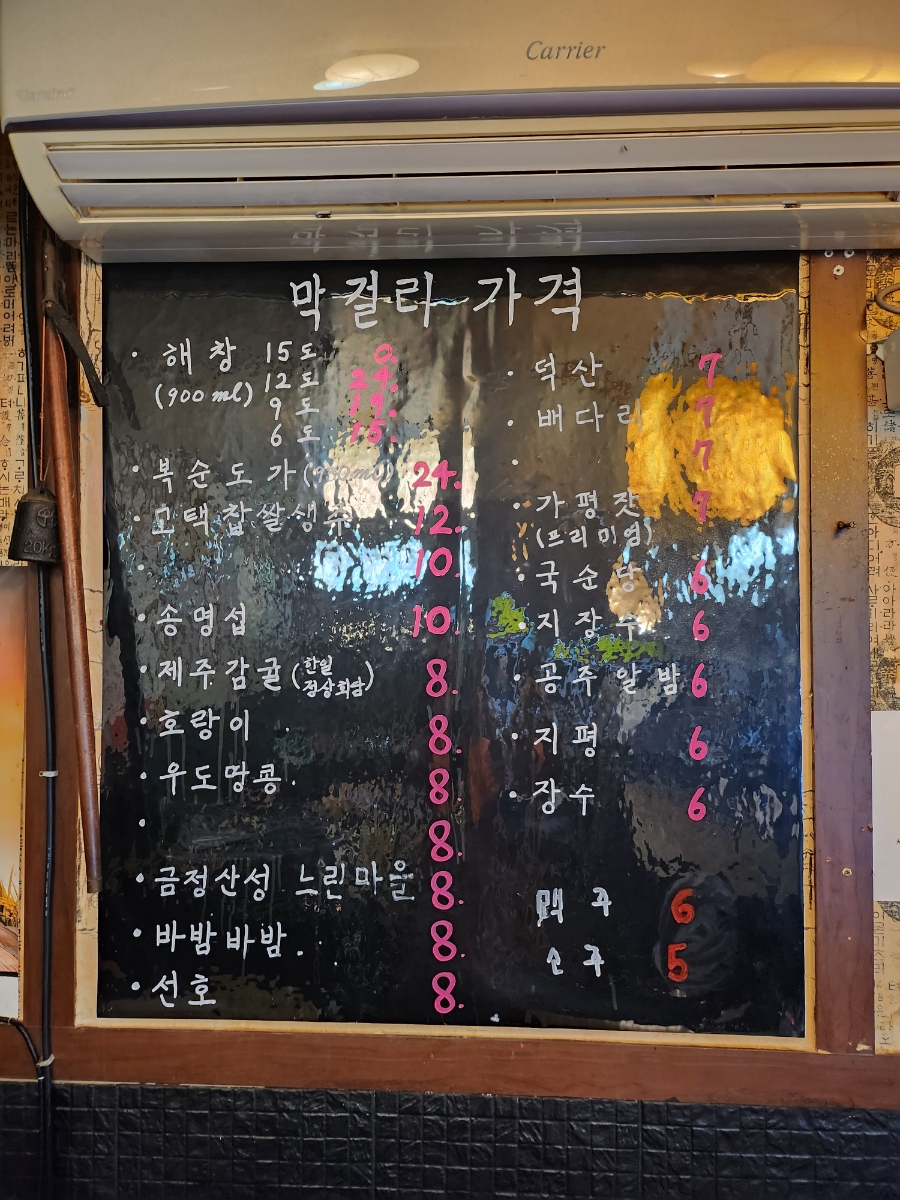 Carrier
막걸리 가격
· 해창 15도 0.
(900ml) 12도 24.
9도 19.
6도 15.
· 복순도가 24.
· 고택찹쌀생주 12.
· 10.
· 송명섭 10.
· 제주감귤 (한일 정상회담) 8.
· 호랑이 8.
· 우도땅콩. 8.
· 8.
· 금정산성 느린마을 8.
· 바밤바밤. 8.
· 선호 8.
· 덕산 7
· 배다리 7
· 7
· 가평잣 7
(프리미엄)
· 국순당 6
· 지장수 6
· 공주알밤 6
· 지평 6
· 장수 6
맥주 6
소주 5
20KG